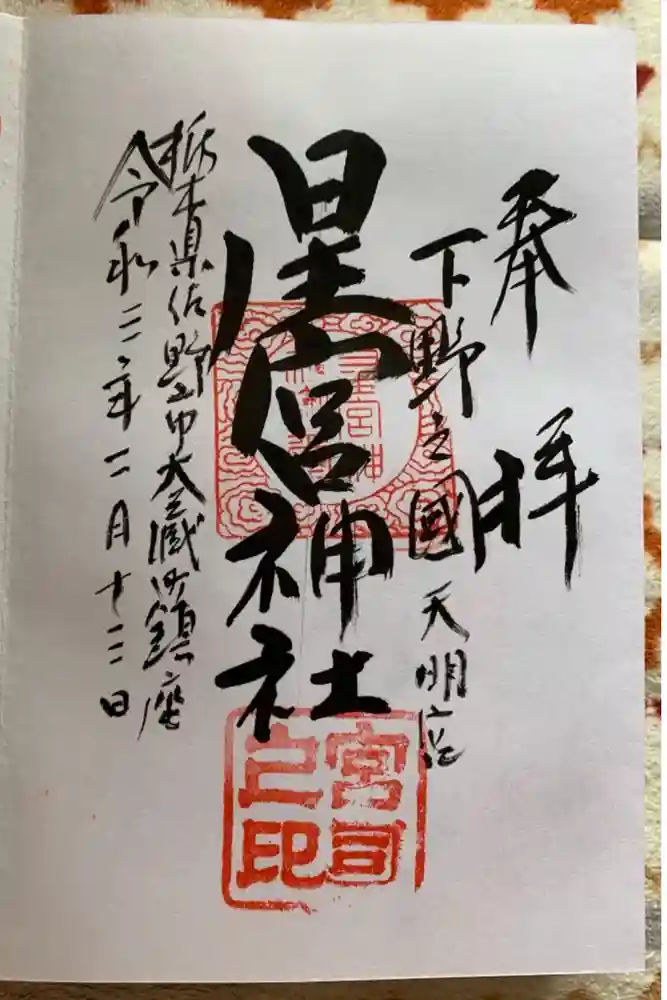 奉拝
下野之國 天明宿
星宮神社
栃木県佐野市大蔵町鎮座
令和三年二月十三日
星宮神社
宮司之印